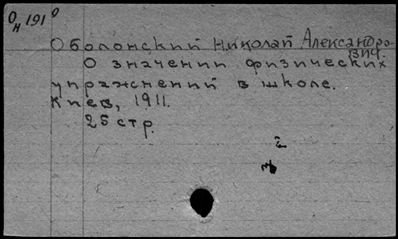 О/н 191⁰
Оболонский Николай Александрович.
О значении физических
упражнений в школе.
Киев, 1911.
25 стр.